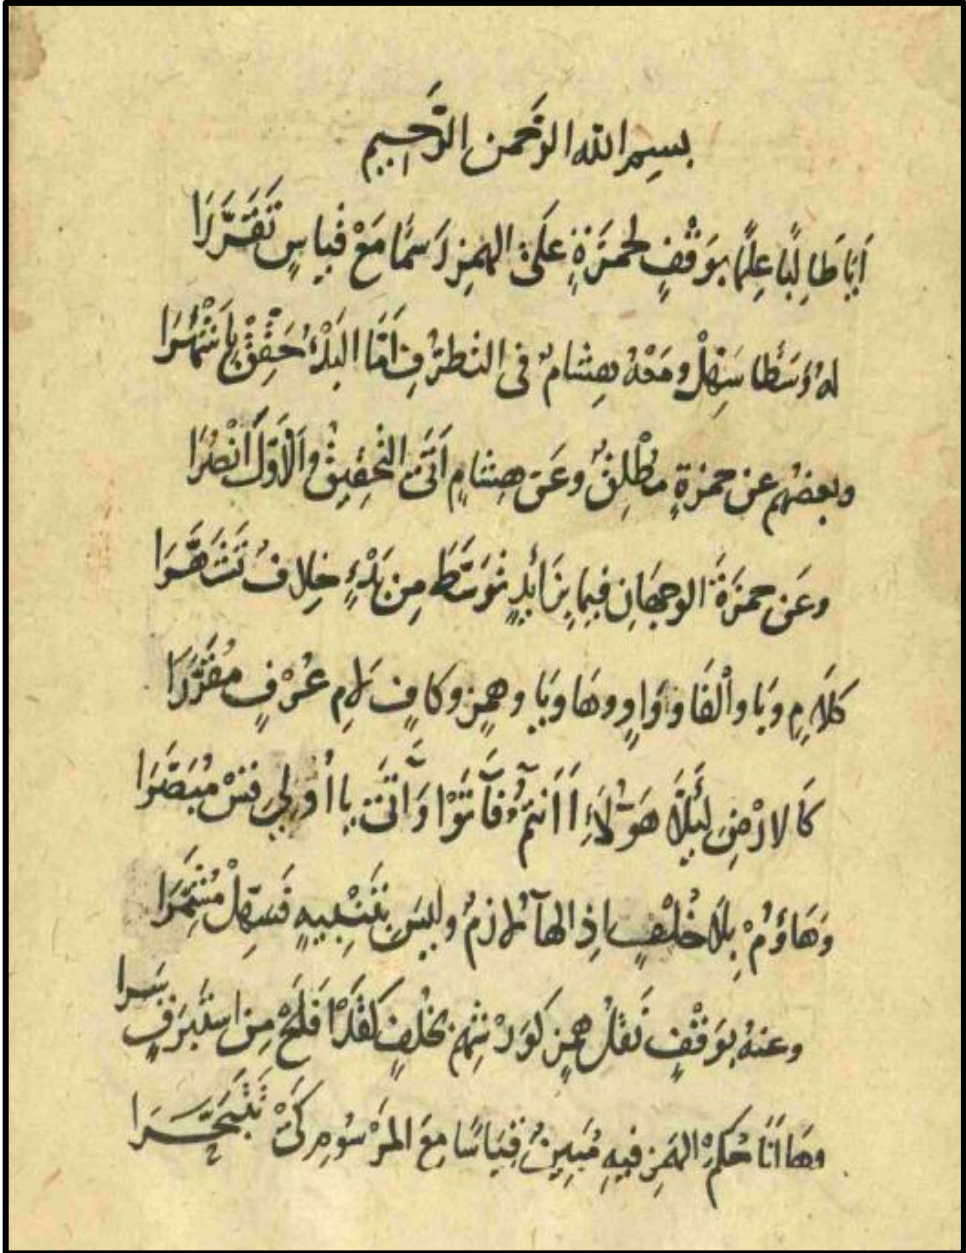 بسم الله الرَّحمن الرَّحيم
أيَا طَالِبًا عِلمًا بوَقْفٍ لحمزَةٍ علَى الهمزِ رَسمًا مَعْ قياسٍ تقَرَّرَا
لهُ وَسَطا سَهِّلْ ومَعْهُ هِشامٌ فى التطرُّفِ أمَّا البَدْءُ حَقِّقْ
وبعضهُم عن حمزةٍ مطْلِقٌ وعَن هِشامٍ أتَى التحقِيقُ والأوّلَ انْصُرَا
وعَن حمزَةَ الوجهَانِ فيما بزَائدٍ توَسَّطَ مِن بَدْءٍ خِلافٌ
كلَامٍ وبَا وألفَا ووَاوٍ وهَا ويَا وهمزٍ وكافٍ لامِ عُرْفٍ مقَرَّرَا
كَالارْضِ لِئَلَّا هَؤُلَاءِ أَأَنتمُ فَآتَوْا وَآتَى يا أُولِي قِسْ مُبَصَّرَا
وَهَاؤُمْ بِلَا خُلْفٍ إذِ الهآ لازمٌ وليسَ بتَنْبِيهٍ فَسَهِّلْ مُشَمِّرَا
وعنهُ بوَقْفٍ نَقْلُ همزٍ كوَرْشِهِمْ بخُلْفٍ كقَدْ أَفْلَحْ مِنِ اسْتَبْرَقٍ سَرا
وهَا أنَا حُكمُ الهمْزِ فيهِ مُبَيِّنٌ قِيَاسًا معَ المَرْسُومِ كَىْ تَتَبَحَّرَا